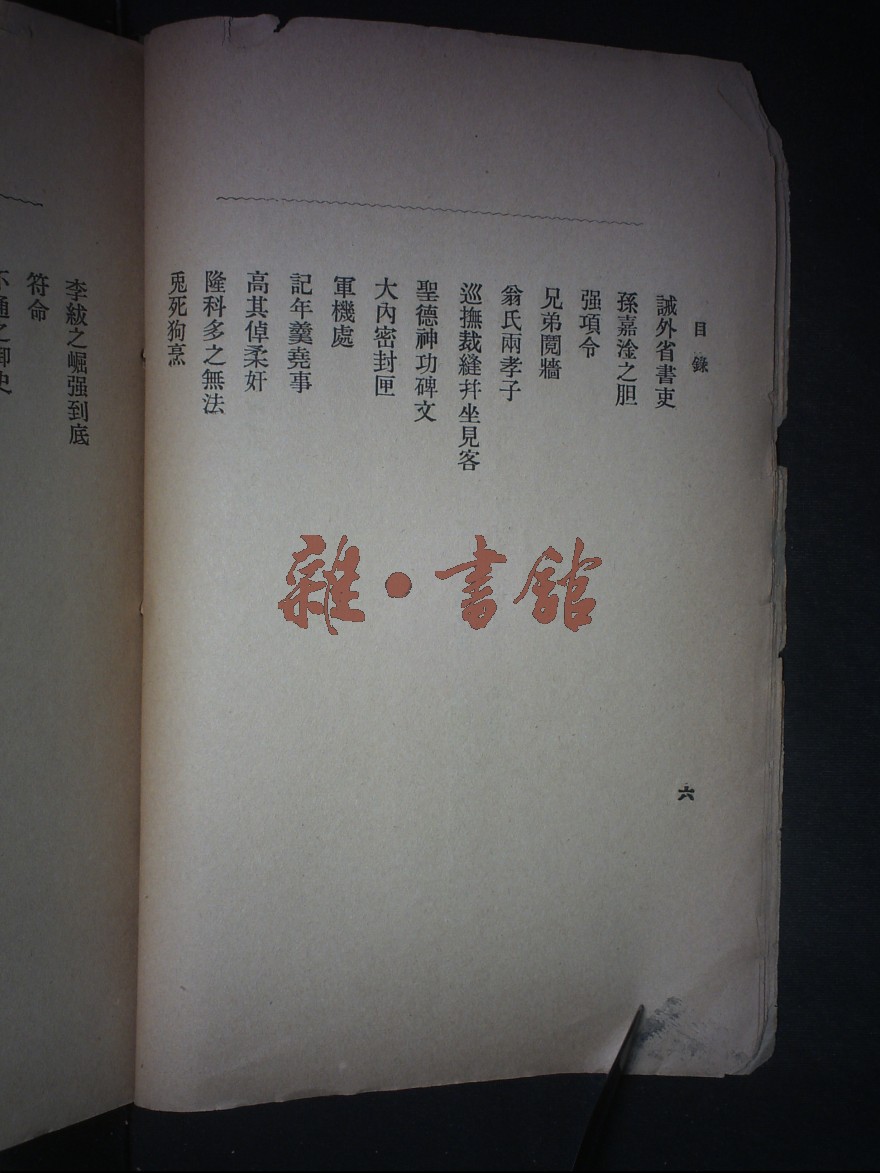 目錄
誡外省書吏
孫嘉淦之胆
强項令
兄弟鬩牆
翁氏兩孝子
巡撫裁縫幷坐見客
聖德神功碑文
大內密封匣
軍機處
記年羹堯事
高其倬柔奸
隆科多之無法
兎死狗烹
六
李紱之崛强到底
符命
不通之御史
雜·書館